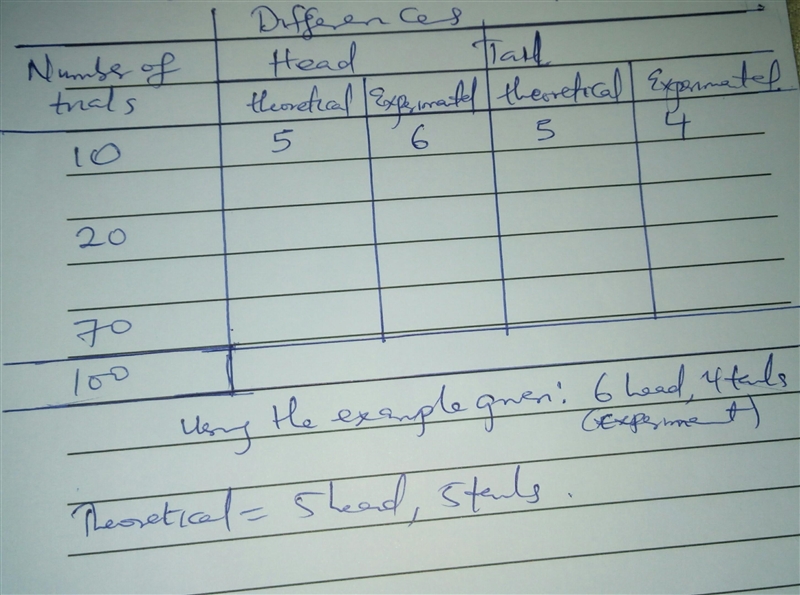 Differences
Number of trials Head Tail
theoretical Experimatel theoretical Experimatel.
10 5 6 5 4
20
70
100
Using the example given: 6 head, 4 tails
(experiment)
Theoretical = 5 head, 5 tails.